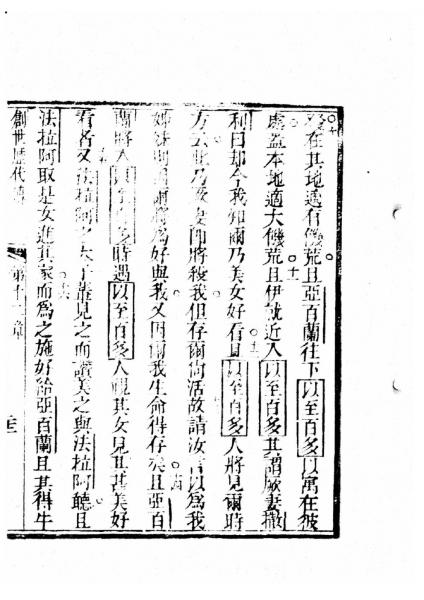 十。在其地遇有饑荒且亞百蘭往下以至百多以寓在彼
處蓋本地適大饑荒十一。且伊就近入以至百多其謂厥妻撒
利曰却今我知爾乃美女好看十二。且以至百多人將見爾時
方云此乃厥妻即將殺我但存爾尚活十三。故請汝言以為我
姊妹則爾將為好與我又因爾我生命得存矣十四。且亞百
蘭將入以至百多時遇以至百多人視其女見其甚美好
看十五。者又法拉阿之太子輩見之而讚美之與法拉阿聽且
法拉阿取是女進其家十六。而為之施好給亞百蘭且其得牛
創世歷代傳 第十二章